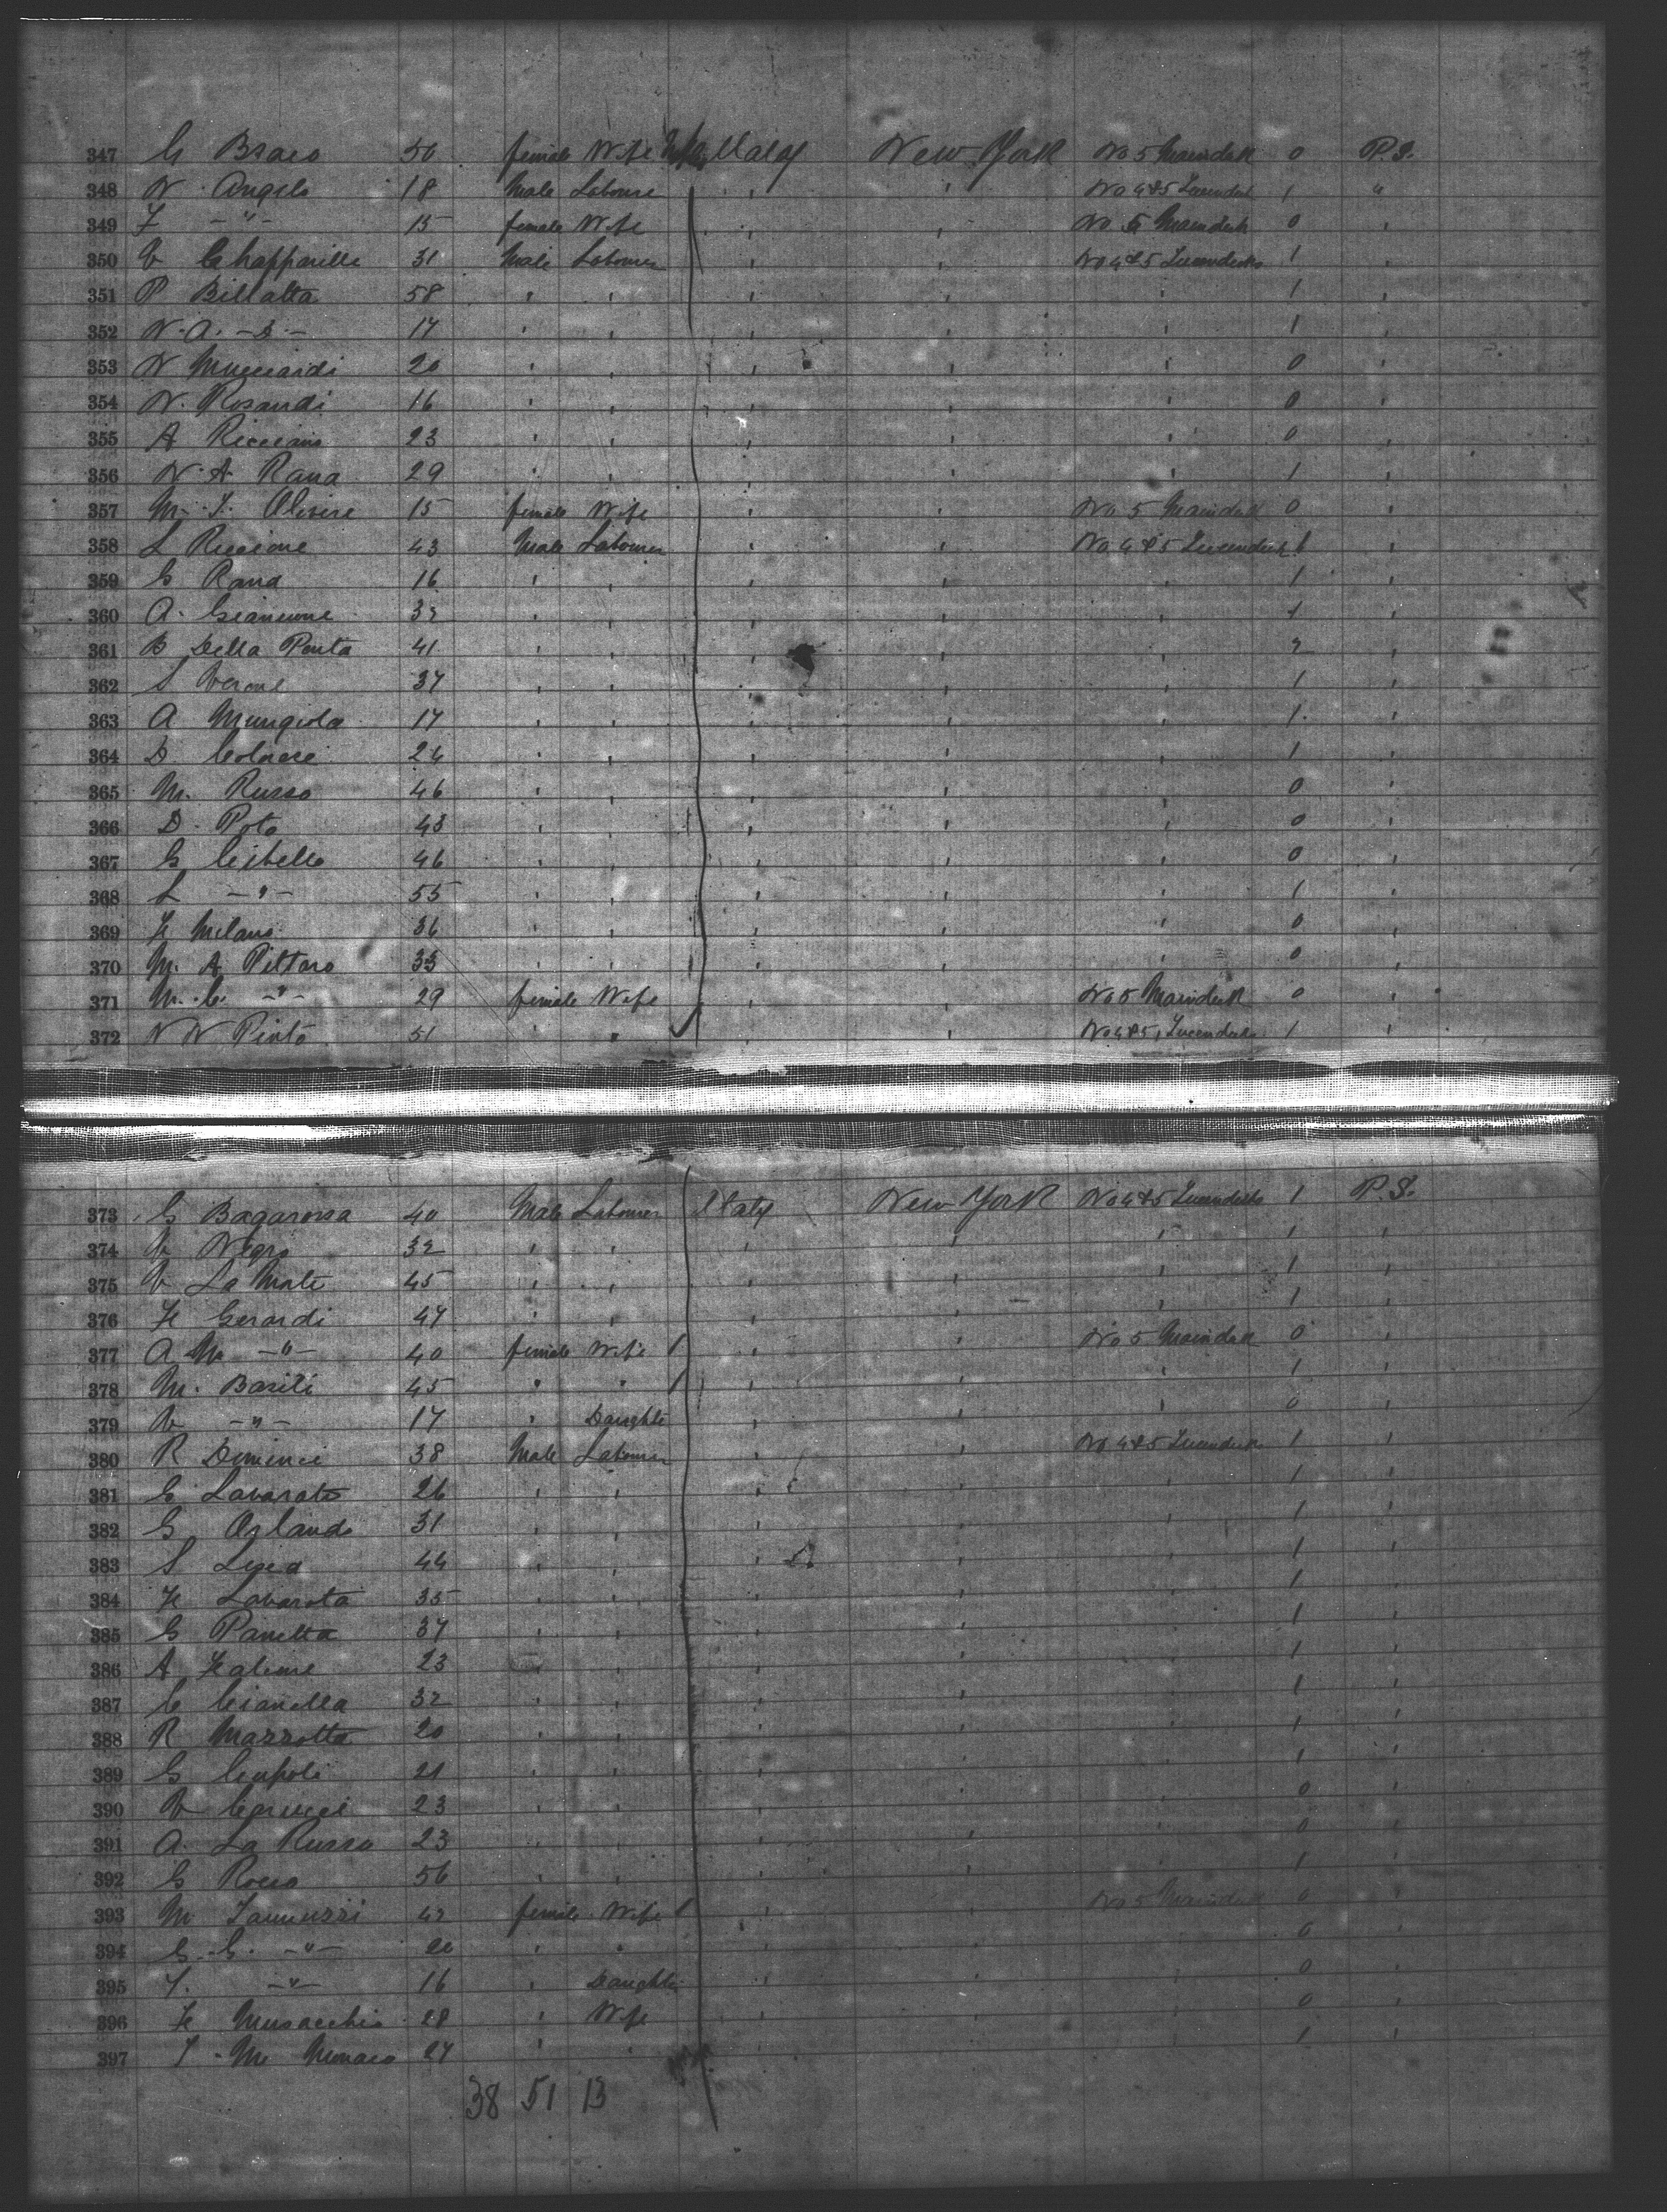 347 G Braco 50 female Wife Italy New York No 5 Maindeck 0 P.S.
348 N. Angelo 18 Male Labourer ' ' No 4&5 1 "
349 F -"- 15 female Wife ' ' No 5 Maindeck 0 '
350 V Chapparille 31 Male Labourer ' ' No 4&5 1 '
351 P Billatta 58 ' ' ' ' ' 1 '
352 N. A. -"- 17 ' ' ' ' ' 1 '
353 N Mucciardi 20 ' ' ' ' ' 0 '
354 N. Rosandi 16 ' ' ' ' ' 0 '
355 A Ricciano 23 ' ' ' ' ' 0 '
356 N. A. Rana 29 ' ' ' ' ' 1 '
357 M. F. Oliviere 15 female Wife ' ' No 5 Maindeck 0 '
358 L Riccione 43 Male Labourer ' ' No 4&5 1 '
359 G Rana 16 ' ' ' ' ' 1 '
360 A. Giancione 32 ' ' ' ' ' 1 '
361 B Della Ponta 41 ' ' ' ' ' 2 '
362 S Verone 37 ' ' ' ' ' 1 '
363 A Mungiola 17 ' ' ' ' ' 1 '
364 D. Colucci 24 ' ' ' ' ' 1 '
365 M. Russo 46 ' ' ' ' ' 0 '
366 D. Poto 43 ' ' ' ' ' 0 '
367 G Cibello 46 ' ' ' ' ' 0 '
368 L -"- 55 ' ' ' ' ' 1 '
369 F Milano 36 ' ' ' ' ' 0 '
370 M. A Pittaro 33 ' ' ' ' ' 0 '
371 M. C. -"- 29 female Wife ' ' No 5 Maindeck 0 '
372 N N Pinto 51 ' " ' ' No 4&5 1 '
373 G Bagarossa 40 Male Labourer Italy New York No 4&5 1 P.S.
374 V Negro 32 ' ' ' ' ' 1 '
375 V La Male 45 ' ' ' ' ' 1 '
376 F Gerardi 47 ' ' ' ' ' 1 '
377 A M -"- 40 female Wife ' ' No 5 Maindeck 0 '
378 M. Basili 45 " " ' ' ' 1 '
379 V -"- 17 ' Daughter ' ' ' 0 '
380 R Diminci 38 Male Labourer ' ' No 4&5 1 '
381 G Lavarato 26 ' ' ' ' ' 1 '
382 G Orlando 31 ' ' ' ' ' 1 '
383 S 44 ' ' ' ' ' 1 '
384 F Lavarota 35 ' ' ' ' ' 1 '
385 G Panetta 37 ' ' ' ' ' 1 '
386 A 23 ' ' ' ' ' 1 '
387 C Cianella 32 ' ' ' ' ' 1 '
388 R Mazzotta 20 ' ' ' ' ' 1 '
389 G Cupoli 21 ' ' ' ' ' 1 '
390 V Carucci 23 ' ' ' ' ' 0 '
391 A. La Russo 23 ' ' ' ' ' 0 '
392 G Rocco 56 ' ' ' ' ' 1 '
393 M Iannuzzi 42 female Wife ' ' No 5 Maindeck 0 '
394 G. G. -"- 20 ' " ' ' ' 0 '
395 F. -"- 16 ' Daughter ' ' ' 0 '
396 F Musacchio 28 ' Wife ' ' ' 0 '
397 F. M Monaco 27 ' ' ' ' ' 1 '
38 51 13